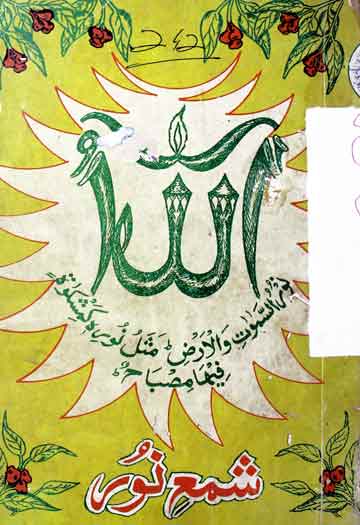 الله
نُورُ السَّمٰوٰتِ وَالْاَرْضِ ؕ مَثَلُ نُورِهٖ كَمِشْكٰوةٍ
فِيْهَا مِصْبَاحٌ ؕ
شمعِ نُور